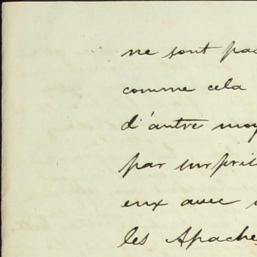 ne sont pas
comme cela
d'autre moy
par surpris
eux avec
les Apache